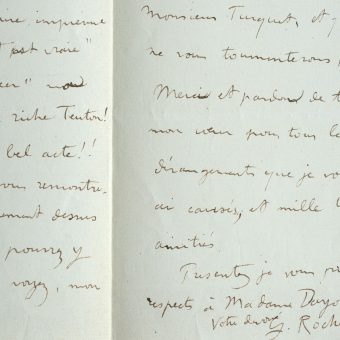 imprimerie
est vraie"
riche Teuton!
bel acte!!
vous rencontre-
dessus
pourrez y
voyez, mon
Monsieur Turquet, et
ne vous tourmenterons
Merci et pardon de t
mon cœur pour tous le
dérangements que je vo
ai causés, et mille b
amitiés.
Presentez je vous pr
respects à Madame Dayo
votre dévoué H. Roch